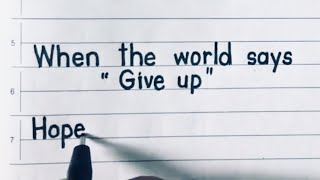 5
When the world says
" Give up"
6
Hope
7